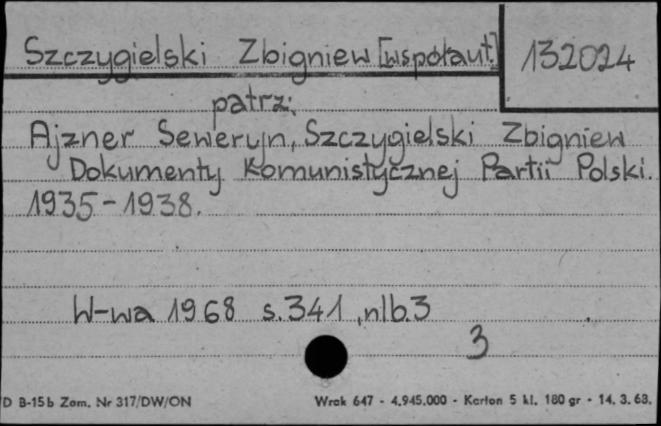 Szczygielski Zbigniew [współaut.] 132024
patrz:
Ajzner Seweryn, Szczygielski Zbigniew
Dokumenty Komunistycznej Partii Polski.
1935-1938.
W-wa 1968 s.341, nlb.3
3
D B-15b Zam. Nr 317/DW/ON Wrok 647 - 4.945.000 - Karton 5 kl. 180 gr - 14. 3. 68.